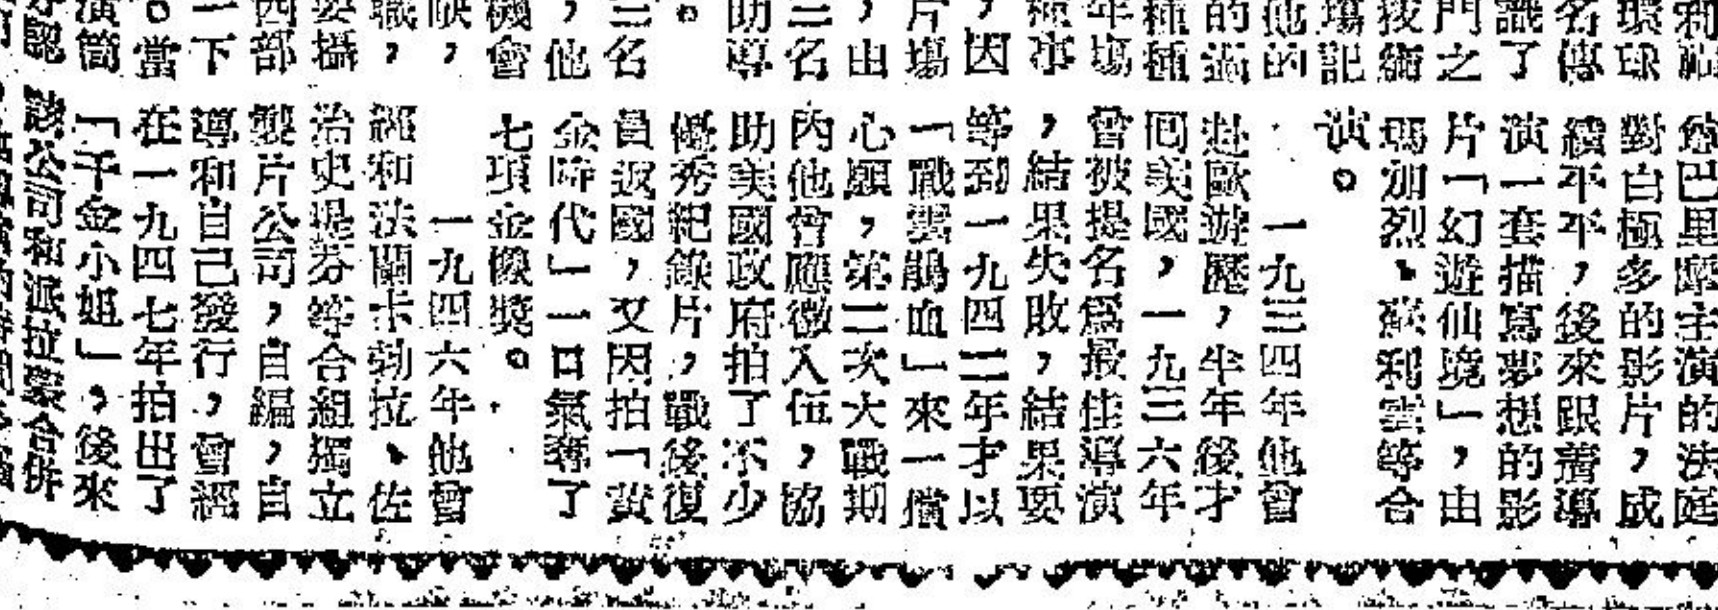 利
環球
名傳
識了
門之
技術
場記
他的
的過
種種
年場
極
，因
片場
，由
二名
助導
。
三名
，他
機會
缺，
職，
要攝
西部
一下
。當
演筒
認
巴里摩主演的法庭
對白極多的影片，成
績平平，後來跟着導
演一套描寫夢想的影
片「幻遊仙境」，由
瑪加烈、蘇利雲等合
演。
一九三四年他曾
赴歐遊歷，半年後才
囘美國，一九三六年
曾被提名爲最佳導演
，結果失敗，結果要
等到一九四二年才以
「戰雲鵑血」來一償
心願，第二次大戰期
內他曾應徵入伍，協
助美國政府拍了不少
優秀紀錄片，戰後復
員返國，又因拍「黃
金時代」一口氣奪了
七項金像獎。
一九四六年他曾
經和法蘭卡勃拉、佐
治史提芬等合組獨立
製片公司，自編，自
導和自己發行，曾經
在一九四七年拍出了
「千金小姐」，後來
該公司和派拉蒙合併